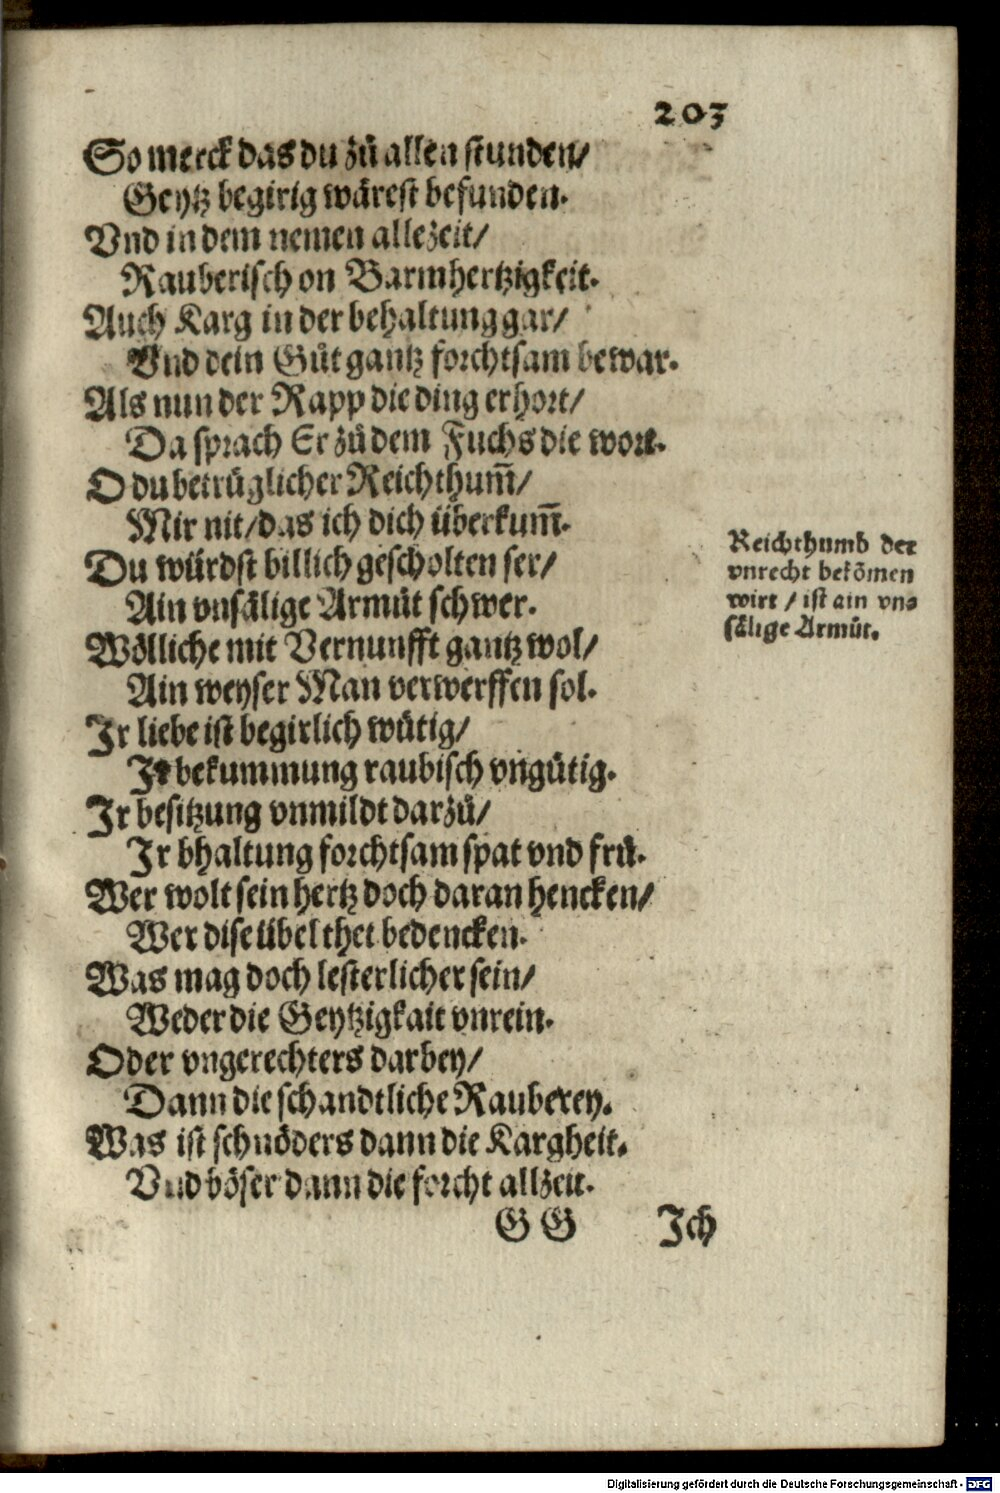 203
So merck das du zů allen stunden/
Geytz begirig wärest befunden.
Vnd in dem nemen allezeit/
Rauberisch on Barmhertzigkeit.
Auch Karg in der behaltung gar/
Vnd dein Gůt gantz forchtsam bewar.
Als nun der Rapp die ding erhort/
Da sprach Er zů dem Fuchs die wort.
O du betrüglicher Reichthum̄/
Mir nit/das ich dich überkum̄.
Du würdst billich gescholten ser/
Ain vnsälige Armůt schwer.
Wölliche mit Vernunfft gantz wol/
Ain weyser Man verwerffen sol.
Ir liebe ist begirlich wütig/
Ir bekummung raubisch vngütig.
Ir besitzung vnmildt darzů/
Ir bhaltung forchtsam spat vnd frů.
Wer wolt sein hertz doch daran hencken/
Wer dise übel thet bedencken.
Was mag doch lesterlicher sein/
Weder die Geytzigkait vnrein.
Oder vngerechters darbey/
Dann die schandtliche Rauberey.
Was ist schnöders dann die Kargheit.
Vnd böser dann die forcht allzeit.
Reichthumb der
vnrecht bekõmen
wirt / ist ain vn⸗
sälige Armůt.
G G Ich
Digitalisierung gefördert durch die Deutsche Forschungsgemeinschaft - DFG